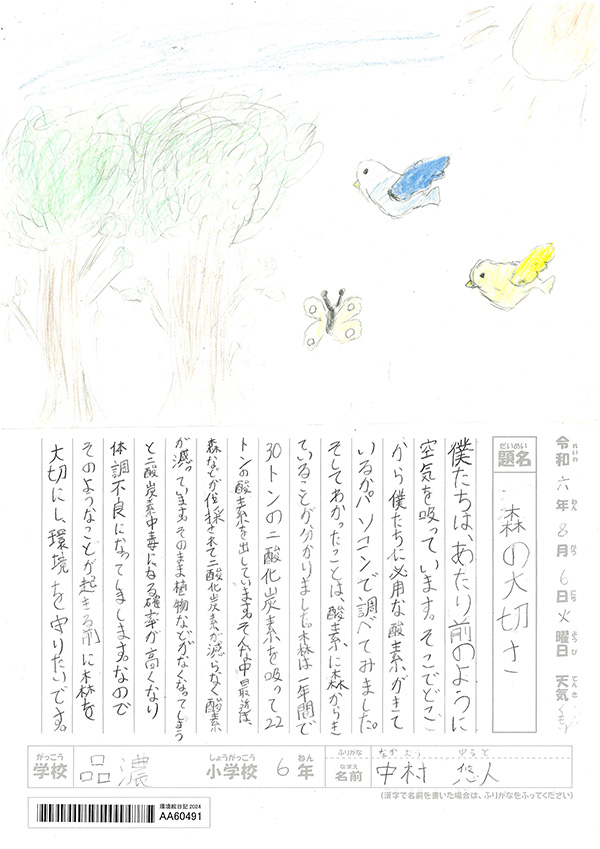 令和六年8月6日火曜日 天気くもり
れいわ ねん がつ にち ようび てんき
だいめい
題名
森の大切さ
僕たちは、あたり前のように
空気を吸っています。そこでどこ
から僕たちに必用な酸素がきて
いるかパソコンで調べてみました。
そしてわかったことは、酸素に森からき
ていることが分かりました。森は一年間で
30トンの二酸化炭素を吸って22
トンの酸素を出しています。そんな中最近は、
森などが伐採されて二酸化炭素が減らなく酸素
が減っています。そのまま植物などがなくなってしまう
と二酸化炭素中毒になる確率が高くなり
体調不良になってしまします。なので
そのようなことが起きる前に森を
大切にし、環境を守りたいです。
がっこう しょうがっこう ねん ふりがな
学校 品濃 小学校 6年
なまえ
名前 中村 悠人
(漢字で名前を書いた場合は、ふりがなをふってください)
環境絵日記2024
AA60491